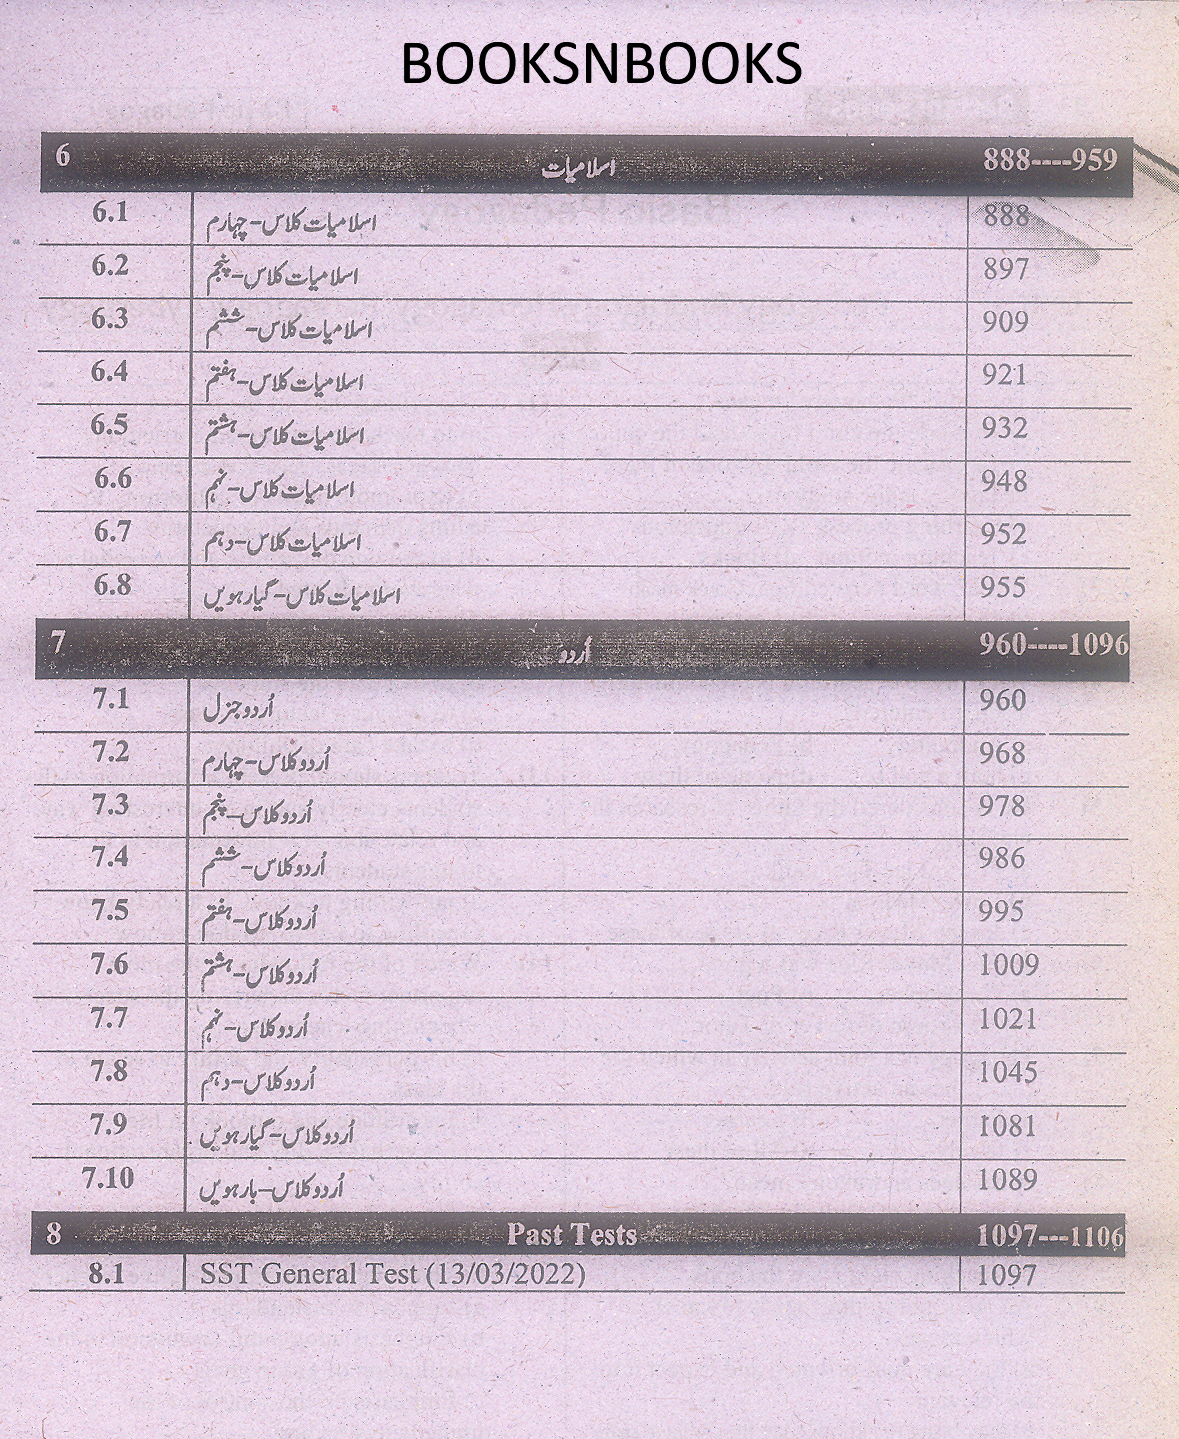 BOOKSNBOOKS
6 اسلامیات 888----959
6.1 اسلامیات کلاس-چہارم 888
6.2 اسلامیات کلاس-پنجم 897
6.3 اسلامیات کلاس-ششم 909
6.4 اسلامیات کلاس-ہفتم 921
6.5 اسلامیات کلاس-ہشتم 932
6.6 اسلامیات کلاس-نہم 948
6.7 اسلامیات کلاس-دہم 952
6.8 اسلامیات کلاس-گیارہویں 955
7 اُردو 960----1096
7.1 اُردو جنرل 960
7.2 اُردو کلاس-چہارم 968
7.3 اُردو کلاس-پنجم 978
7.4 اُردو کلاس-ششم 986
7.5 اُردو کلاس-ہفتم 995
7.6 اُردو کلاس-ہشتم 1009
7.7 اُردو کلاس-نہم 1021
7.8 اُردو کلاس-دہم 1045
7.9 اُردو کلاس-گیارہویں 1081
7.10 اُردو کلاس-بارہویں 1089
8 Past Tests 1097---1106
8.1 SST General Test (13/03/2022) 1097